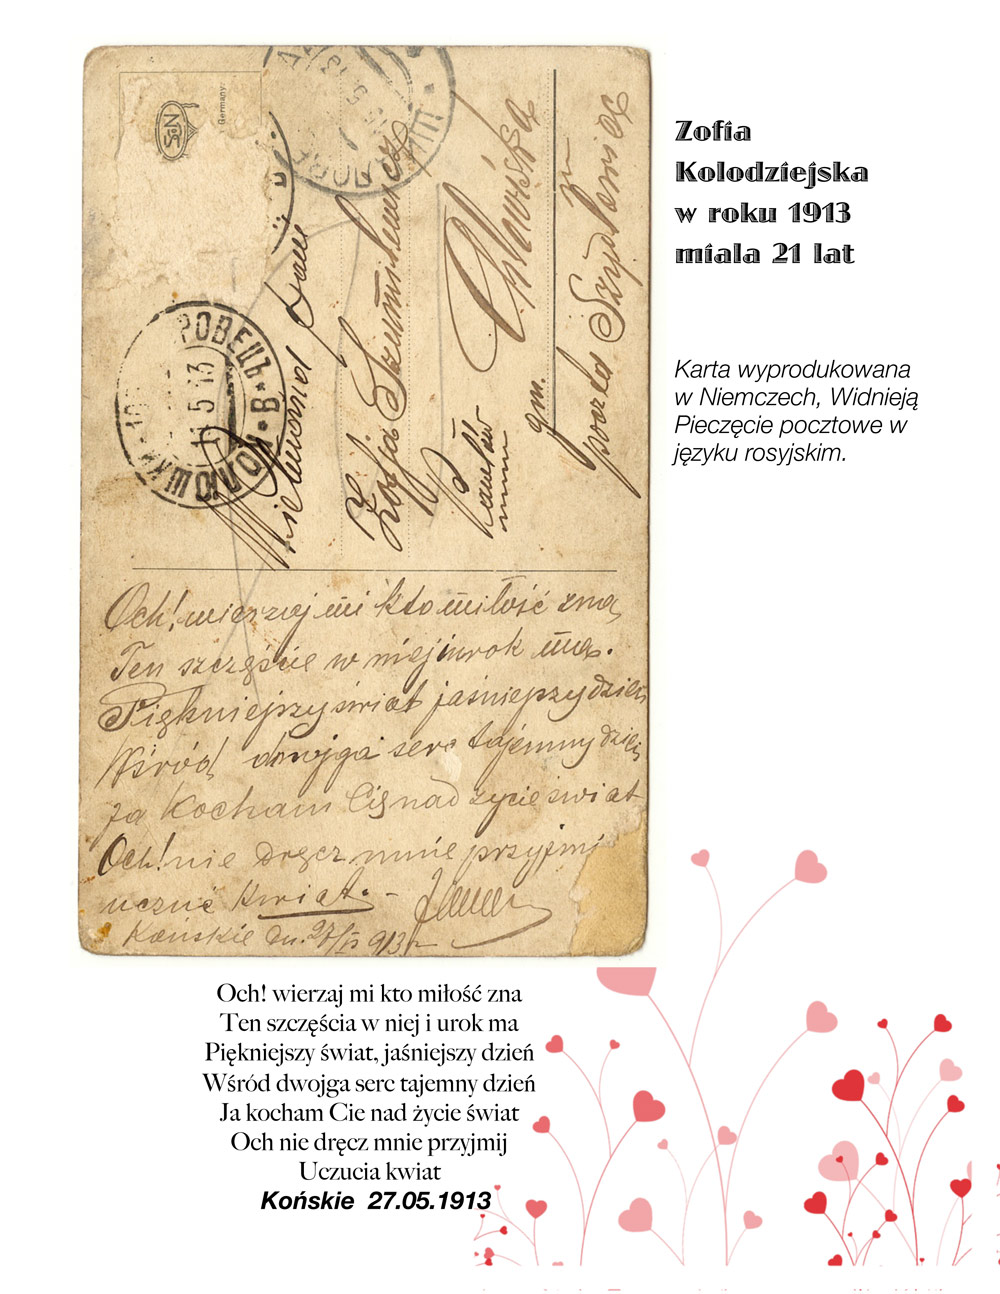 Germany.
NPG
РОВЕЦЪ * В *
5 13
Wielmożna Panna
Zofja Szumilewicz
Chlewiska
gm.
poczta Szydłowiec
Zofia
Kolodziejska
w roku 1913
miala 21 lat
Karta wyprodukowana
w Niemczech, Widnieją
Pieczęcie pocztowe w
języku rosyjskim.
Och! wierzaj mi kto miłość zna
Ten szczęście w niej i urok ma.
Piękniejszy świat jaśniejszy dzień
Wśród dwojga serc tajemny dzień
Ja Kocham Cię nad życie świat
Och! nie Dręcz mnie przyjmij
uczuć Kwiat. -
Końskie dn. 27/V 913 r
Och! wierzaj mi kto miłość zna
Ten szczęścia w niej i urok ma
Piękniejszy świat, jaśniejszy dzień
Wśród dwojga serc tajemny dzień
Ja kocham Cie nad życie świat
Och nie dręcz mnie przyjmij
Uczucia kwiat
Końskie 27.05.1913